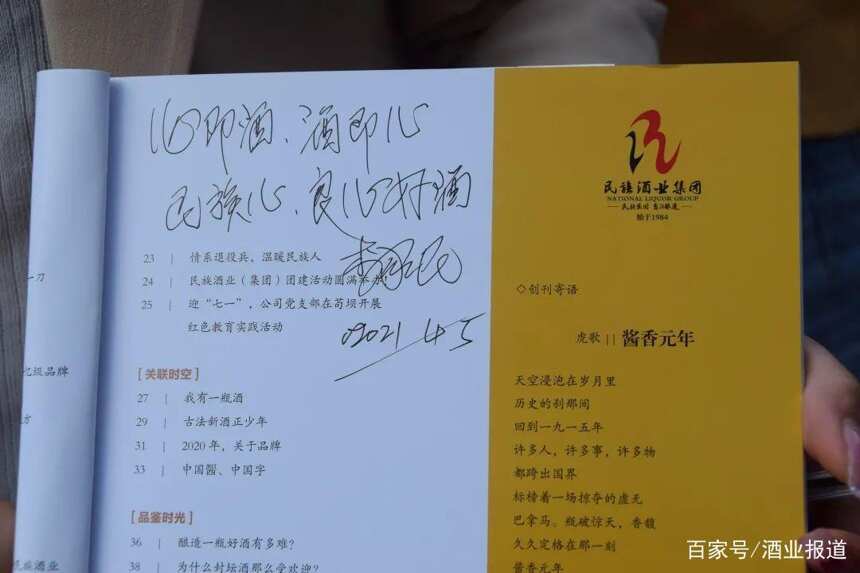 心即酒、酒即心
民族心、良心好酒
2021 4 5
23 | 情系退役兵，温暖民族人
24 | 民族酒业（集团）团建活动圆满举办！
25 | 迎“七一”，公司党支部在苟坝开展
红色教育实践活动
[关联时空]
27 | 我有一瓶酒
29 | 古法新酒正少年
31 | 2020年，关于品牌
33 | 中国醫、中国字
[品鉴时光]
36 | 酿造一瓶好酒有多难？
38 | 为什么封坛酒那么受欢迎？
一刀
品牌
方
族酒业
民族酒业集团
NATIONAL LIQUOR GROUP
始于1984
◇创刊寄语
虎歌 || 酱香元年
天空浸泡在岁月里
历史的刹那间
回到一九一五年
许多人，许多事，许多物
都跨出国界
标榜着一场掠夺的虚无
巴拿马。瓶破惊天，香馥
久久定格在那一刻
酱香元年
百家号/酒业报道